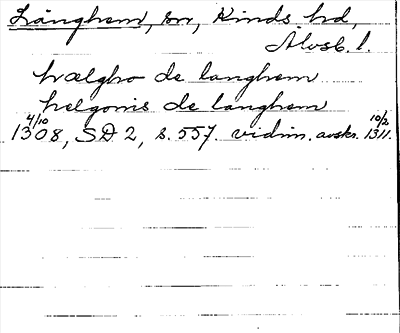 Långhem, sn, Kinds hd,
Älvsb. l.
hælgho de langhem
helgonis de langhem
4/10 1308, SD 2, s. 557. vidim. avskr. 10/2 1311.